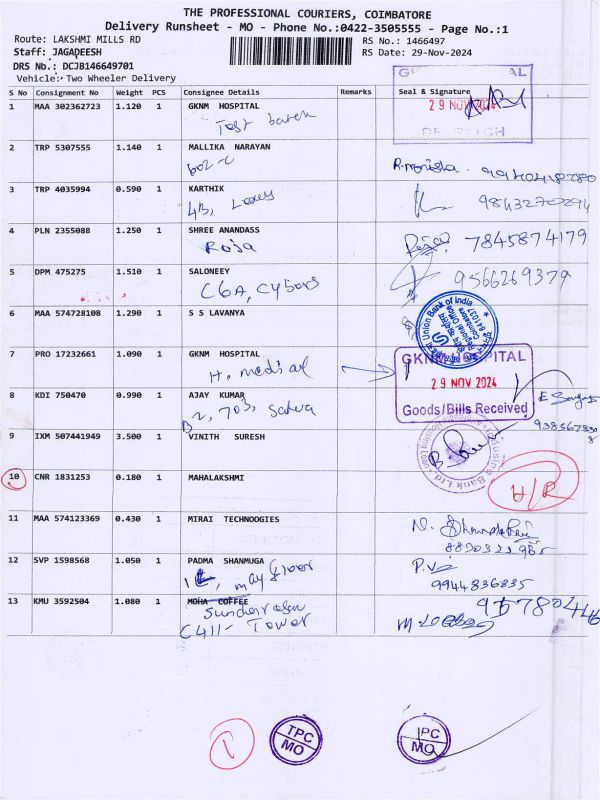 THE PROFESSIONAL COURIERS, COIMBATORE
Delivery Runsheet - MO - Phone No.:0422-3505555 - Page No.:1
Route: LAKSHMI MILLS RD
RS No.: 1466497
Staff: JAGADEESH
RS Date: 29-Nov-2024
DRS No.: DCJB146649701
Vehicle: Two Wheeler Delivery
S No Consignment No Weight PCS Consignee Details Remarks Seal & Signature
1 MAA 302362723 1.120 1 GKNM HOSPITAL
29 NOV 2024
2 TRP 5307555 1.140 1 MALLIKA NARAYAN
602-C
3 TRP 4035994 0.590 1 KARTHIK
4B,
9843270294
4 PLN 2355088 1.250 1 SHREE ANANDASS
Roja 7845874179
5 DPM 475275 1.510 1 SALONEEY
C6A, 9566269379
6 MAA 574728108 1.290 1 S S LAVANYA
Union Bank of India
Regional Office
Coimbatore
641037
7 PRO 17232661 1.090 1 GKNM HOSPITAL
H. medical
GKNM HOSPITAL
29 NOV 2024
Goods/Bills Received
8 KDI 750470 0.990 1 AJAY KUMAR
B2, 703,
9 IXM 507441949 3.500 1 VINITH SURESH
10 CNR 1831253 0.180 1 MAHALAKSHMI
H/R
11 MAA 574123369 0.430 1 MIRAI TECHNOOGIES
12 SVP 1598568 1.050 1 PADMA SHANMUGA
9944836835
13 KMU 3592504 1.080 1 MOHA COFFEE
C411- Tower
1
TPC
MO
TPC
MO